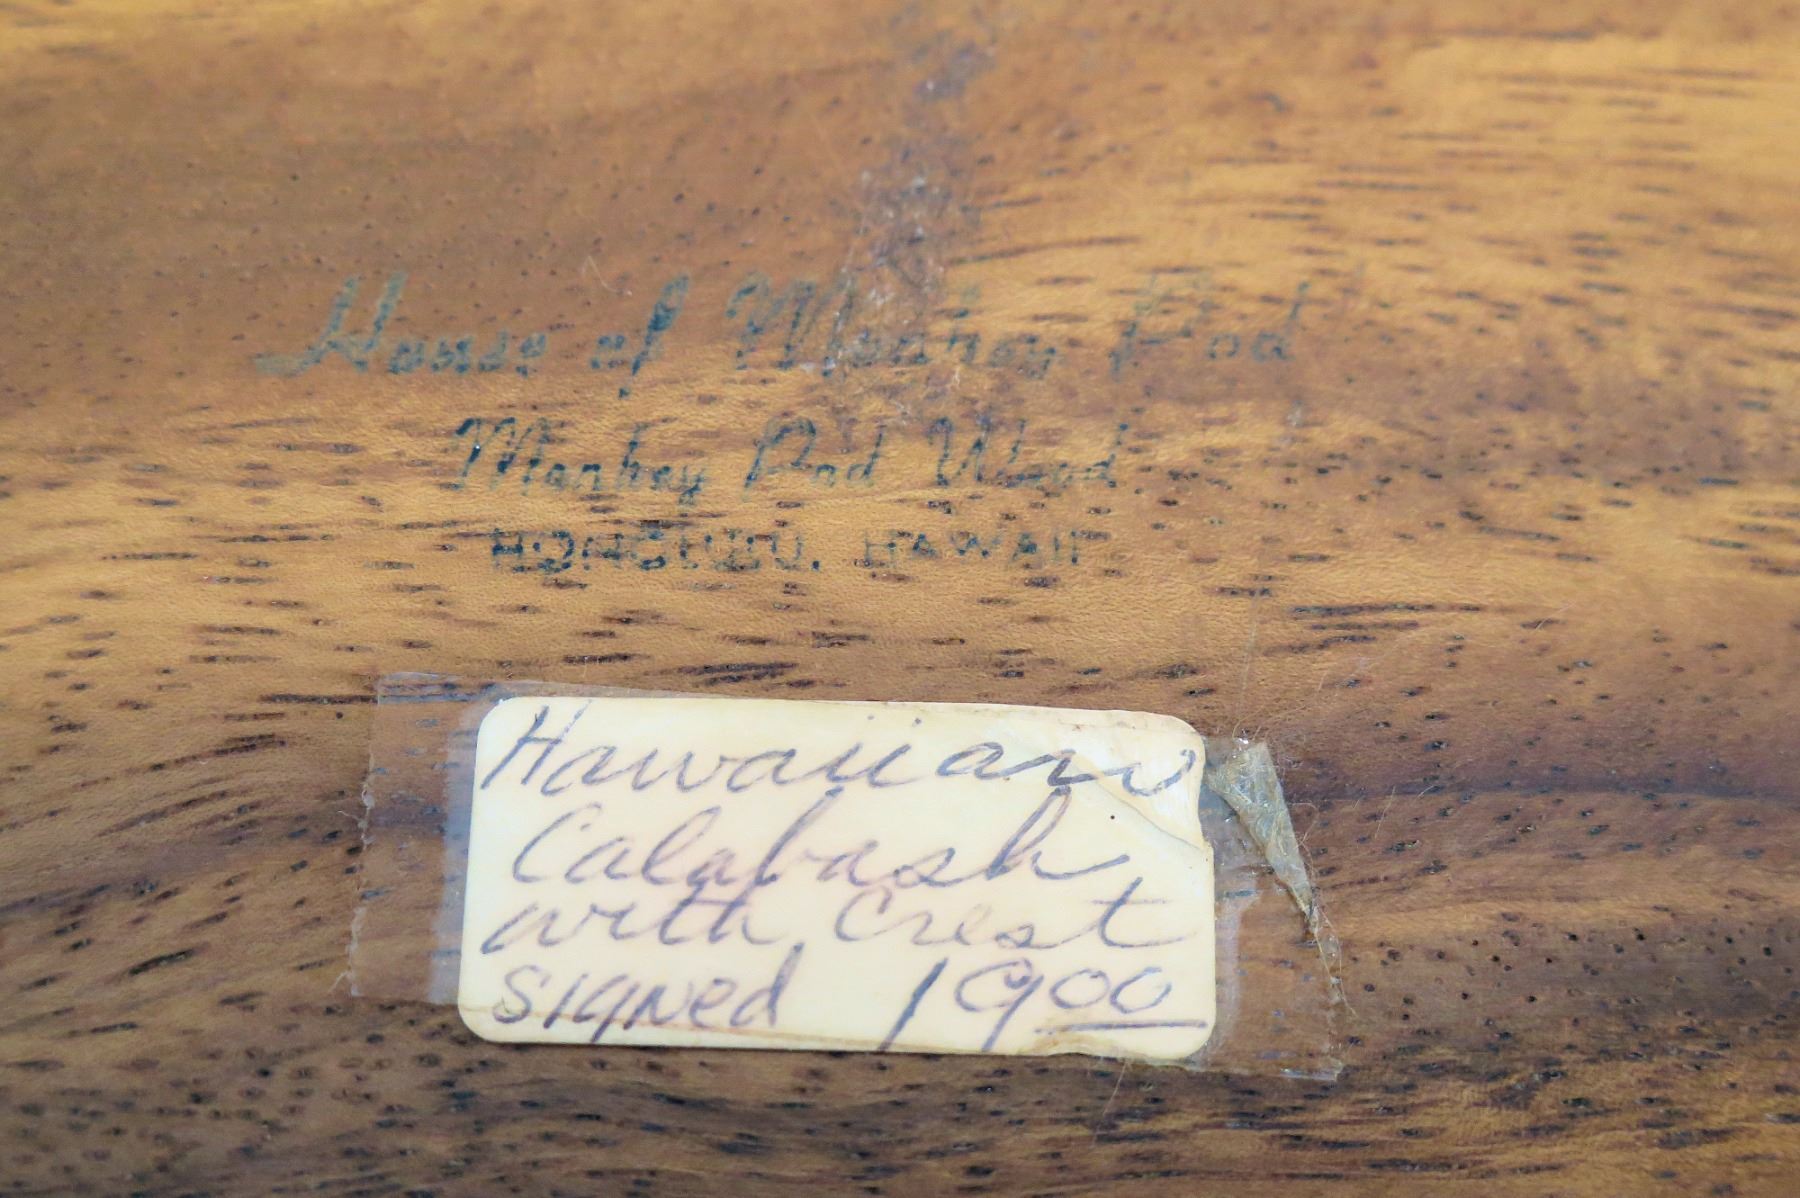 House of Monkey Pod
Monkey Pod Wood
HONOLULU, HAWAII
Hawaiian
Calabash
with Crest
signed 1900